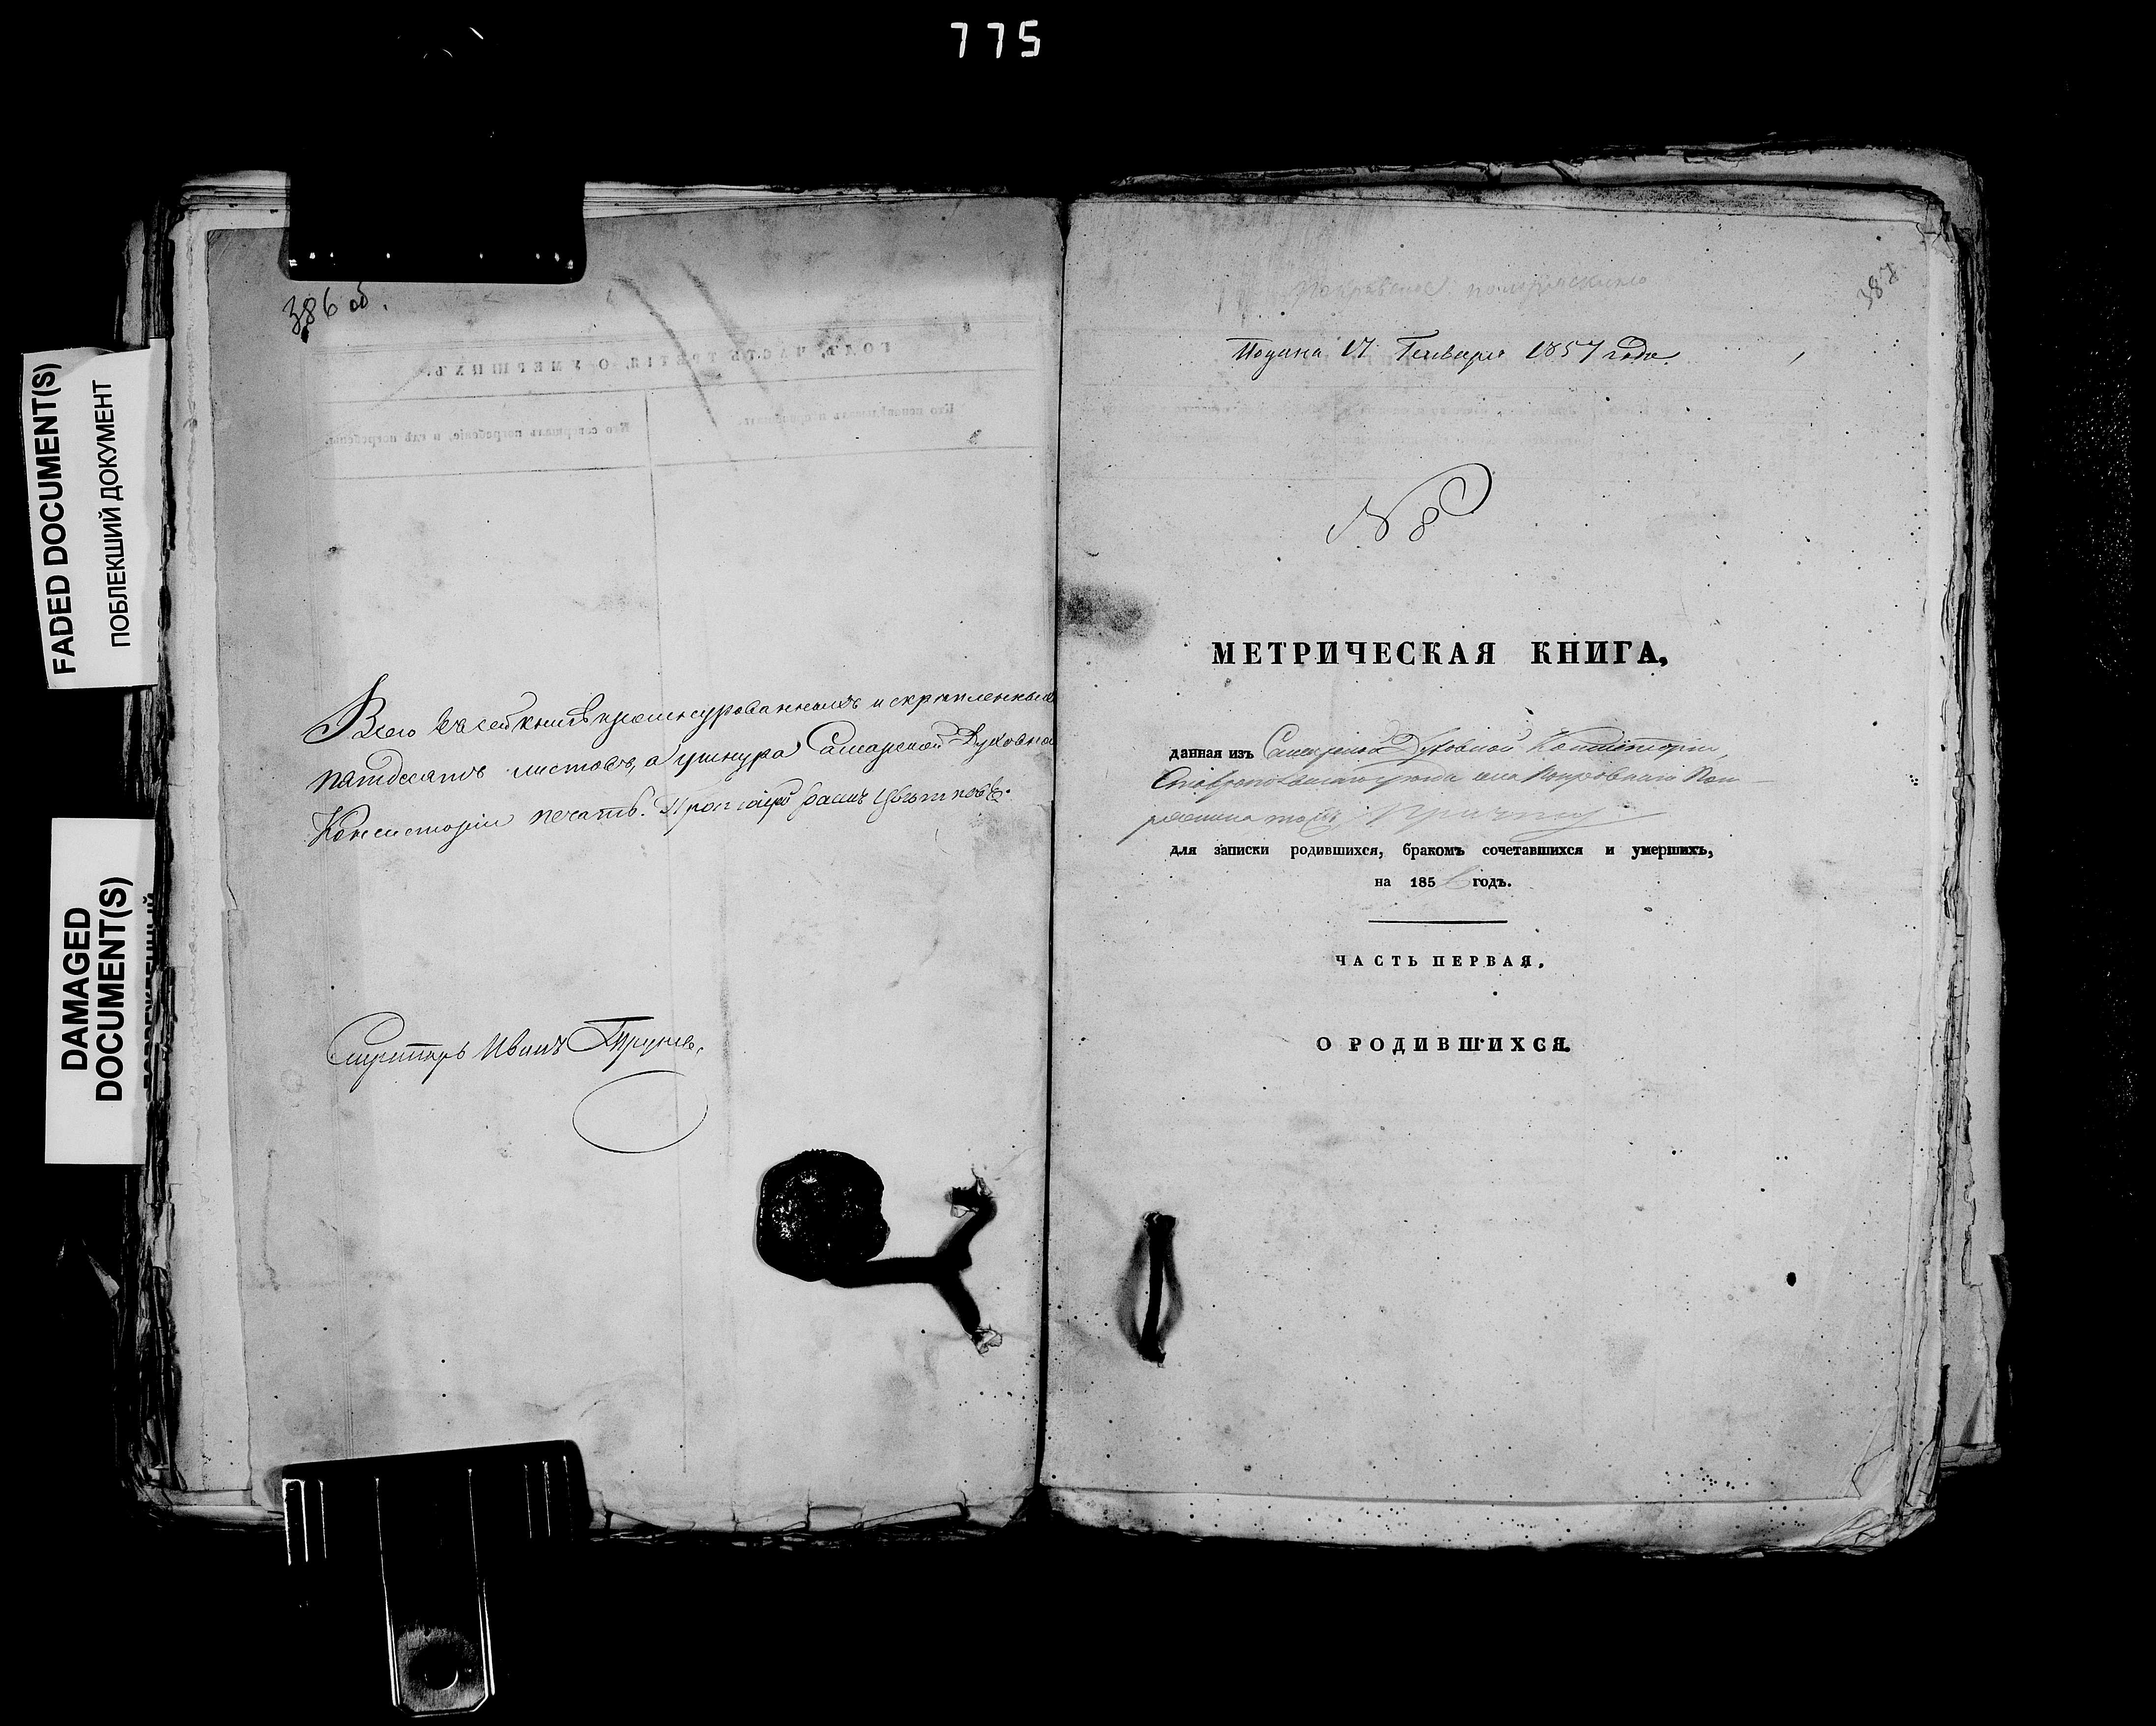 775
FADED DOCUMENT(S)
ПОБЛЕКШИЙ ДОКУМЕНТ
DAMAGED
DOCUMENT(S)
386 об.
ГОДЪ, ЧАСТЬ ТРЕТІЯ, О УМЕРШИХЪ.
Кто совершалъ погребеніе, и гдѣ погребены.
Всего въ сей книгѣ прошнурованныхъ и скрѣпленныхъ
пятдесятъ листовъ, а у шнура Самарской Духовной
Консисторіи печать. Иванъ Цвѣтковъ.
Секретарь Иванъ
387
17 Генваря 1857 года.
N 8
МЕТРИЧЕСКАЯ КНИГА,
данная изъ Самарской Духовной Консисторіи,
Ставропольскаго уѣзда села
причту
для записки родившихся, бракомъ сочетавшихся и умершихъ,
на 185 годъ.
ЧАСТЬ ПЕРВАЯ,
О РОДИВШИХСЯ.